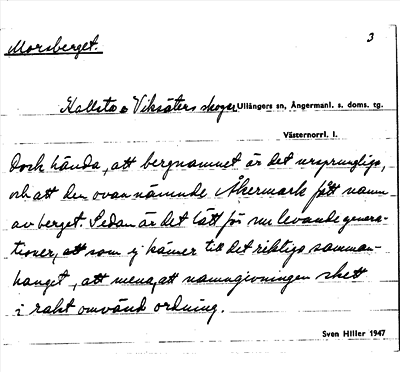 Morsberget.
3
Kallsta o Viksäters skogar Ullångers sn, Ångermanl. s. doms. tg.
Västernorrl. l.
Dock hända, att bergnamnet är det ursprungliga,
och att den ovan nämnde Åkermark fått namn
av berget. Sedan är det lätt för nu levande genera-
tioner, att som ej känner till det riktiga samman-
hanget, att mena, att namngivningen skett
i rakt omvänd ordning.
Sven Hiller 1947